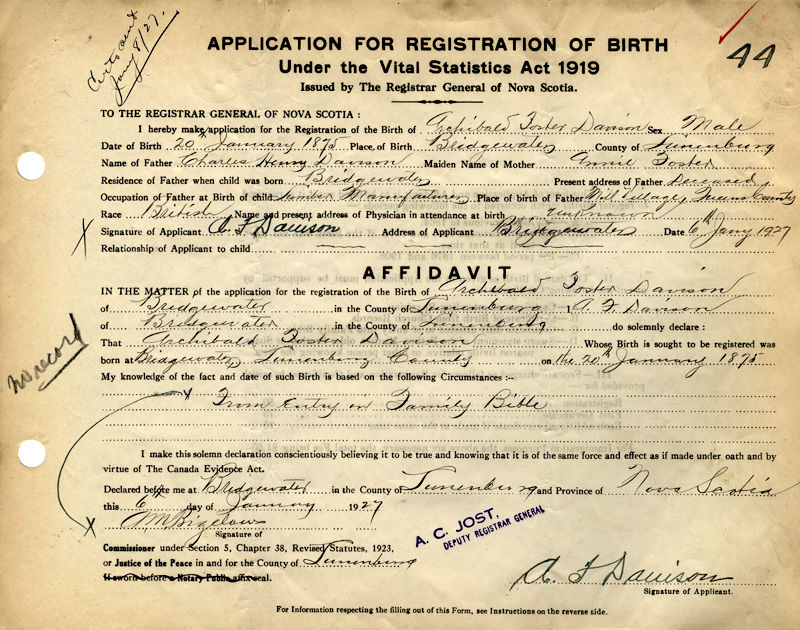 Certs sent
Jany 8/27.
44
APPLICATION FOR REGISTRATION OF BIRTH
Under the Vital Statistics Act 1919
Issued by The Registrar General of Nova Scotia.
TO THE REGISTRAR GENERAL OF NOVA SCOTIA :
I hereby make application for the Registration of the Birth of Archibald Foster Davison Sex Male
Date of Birth 20th January 1875 Place of Birth Bridgewater County of Lunenburg
Name of Father Charles Henry Davison Maiden Name of Mother Annie Foster
Residence of Father when child was born Bridgewater Present address of Father Deceased
Occupation of Father at Birth of child Lumber Manufacturer Place of birth of Father Mill Village, Queens County
Race British Name and present address of Physician in attendance at birth unknown
X Signature of Applicant A. F. Davison Address of Applicant Bridgewater Date 6th Jany 1927
Relationship of Applicant to child
AFFIDAVIT
IN THE MATTER of the application for the registration of the Birth of Archibald Foster Davison
of Bridgewater in the County of Lunenburg I A. F. Davison
of Bridgewater in the County of Lunenburg do solemnly declare :
That Archibald Foster Davison Whose Birth is sought to be registered was
born at Bridgewater Lunenburg County on the 20th January 1875
My knowledge of the fact and date of such Birth is based on the following Circumstances :-
No record
x From Entry in Family Bible
I make this solemn declaration conscientiously believing it to be true and knowing that it is of the same force and effect as if made under oath and by
virtue of The Canada Evidence Act.
Declared before me at Bridgewater in the County of Lunenburg and Province of Nova Scotia
this 6th day of January 1927
x A M Bigelow
Signature of
A. C. JOST,
DEPUTY REGISTRAR GENERAL
Commissioner under Section 5, Chapter 38, Revised Statutes, 1923,
or Justice of the Peace in and for the County of Lunenburg
If sworn before a Notary Public affix seal.
A. F. Davison
Signature of Applicant.
For Information respecting the filling out of this Form, see Instructions on the reverse side.